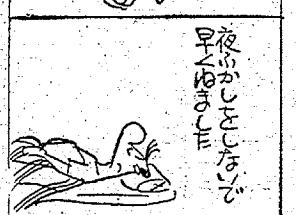 夜ふかしをしないで
早くねました